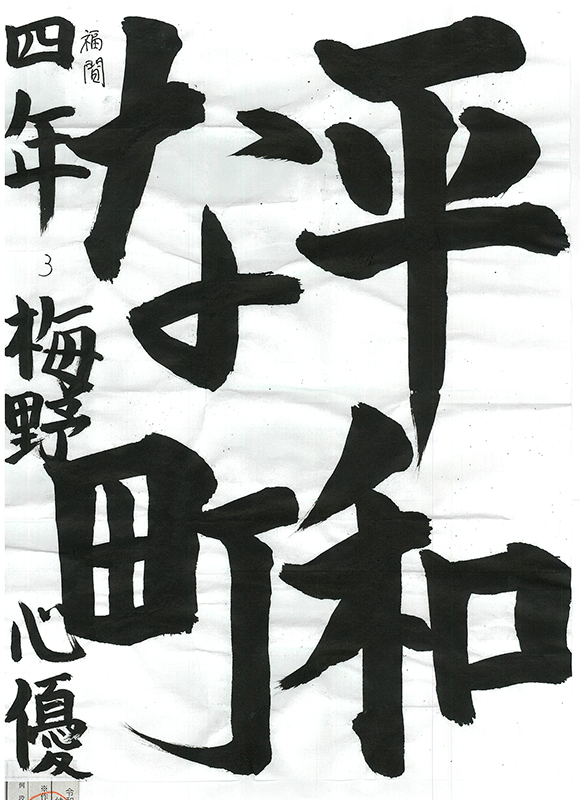 平和
な町
福間
四年 3 梅野 心優